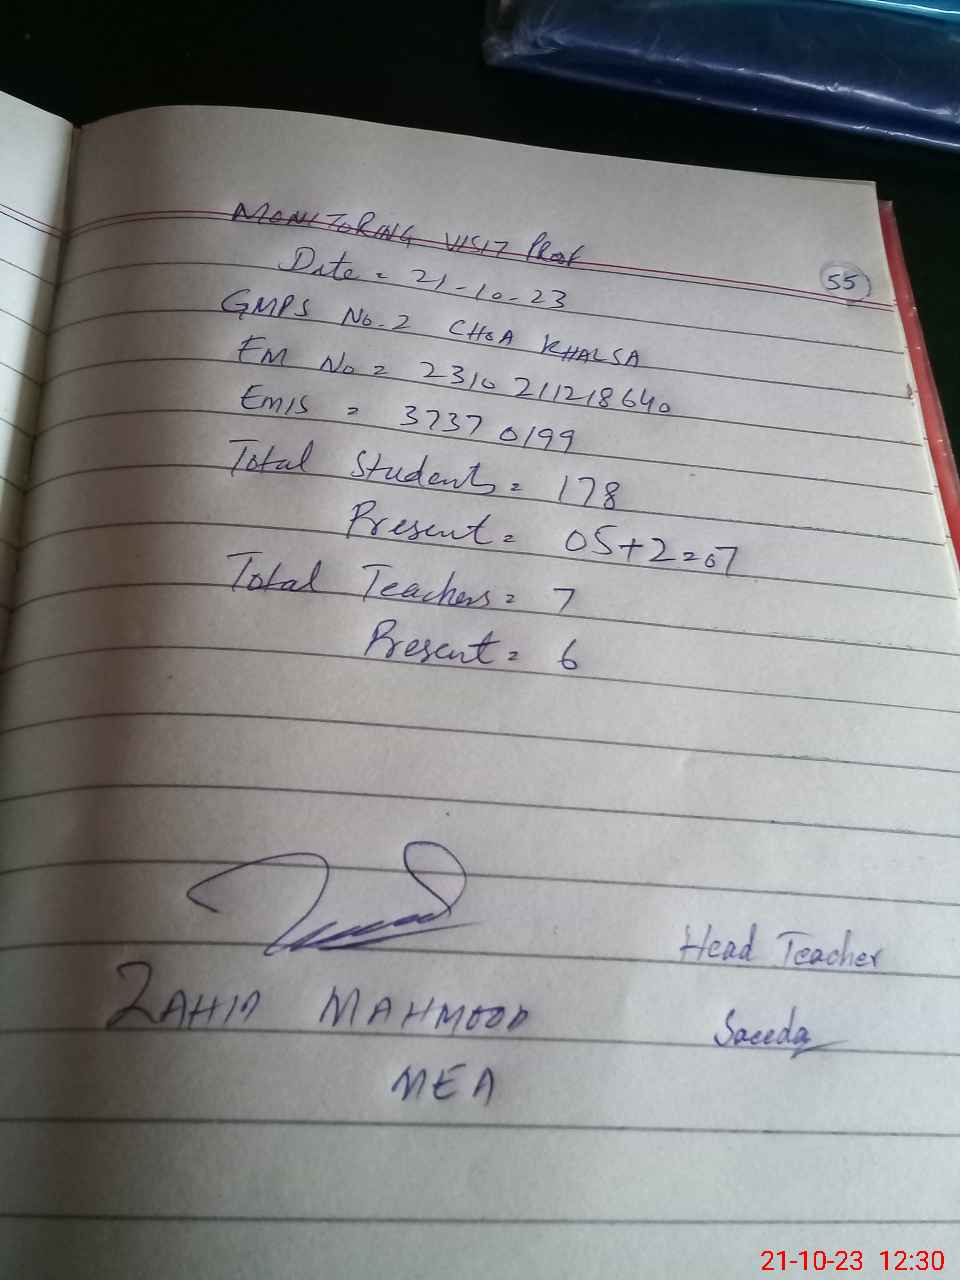 MONITORING VISIT Prof
55
Date = 21-10-23
GMPS No. 2 CHOA KHALSA
EM No = 2310 211218640
EMIS = 3737 0199
Total Students = 178
Present = 05+2=07
Total Teachers = 7
Present = 6
Head Teacher
ZAHID MAHMOOD
Saeeda
MEA
21-10-23 12:30